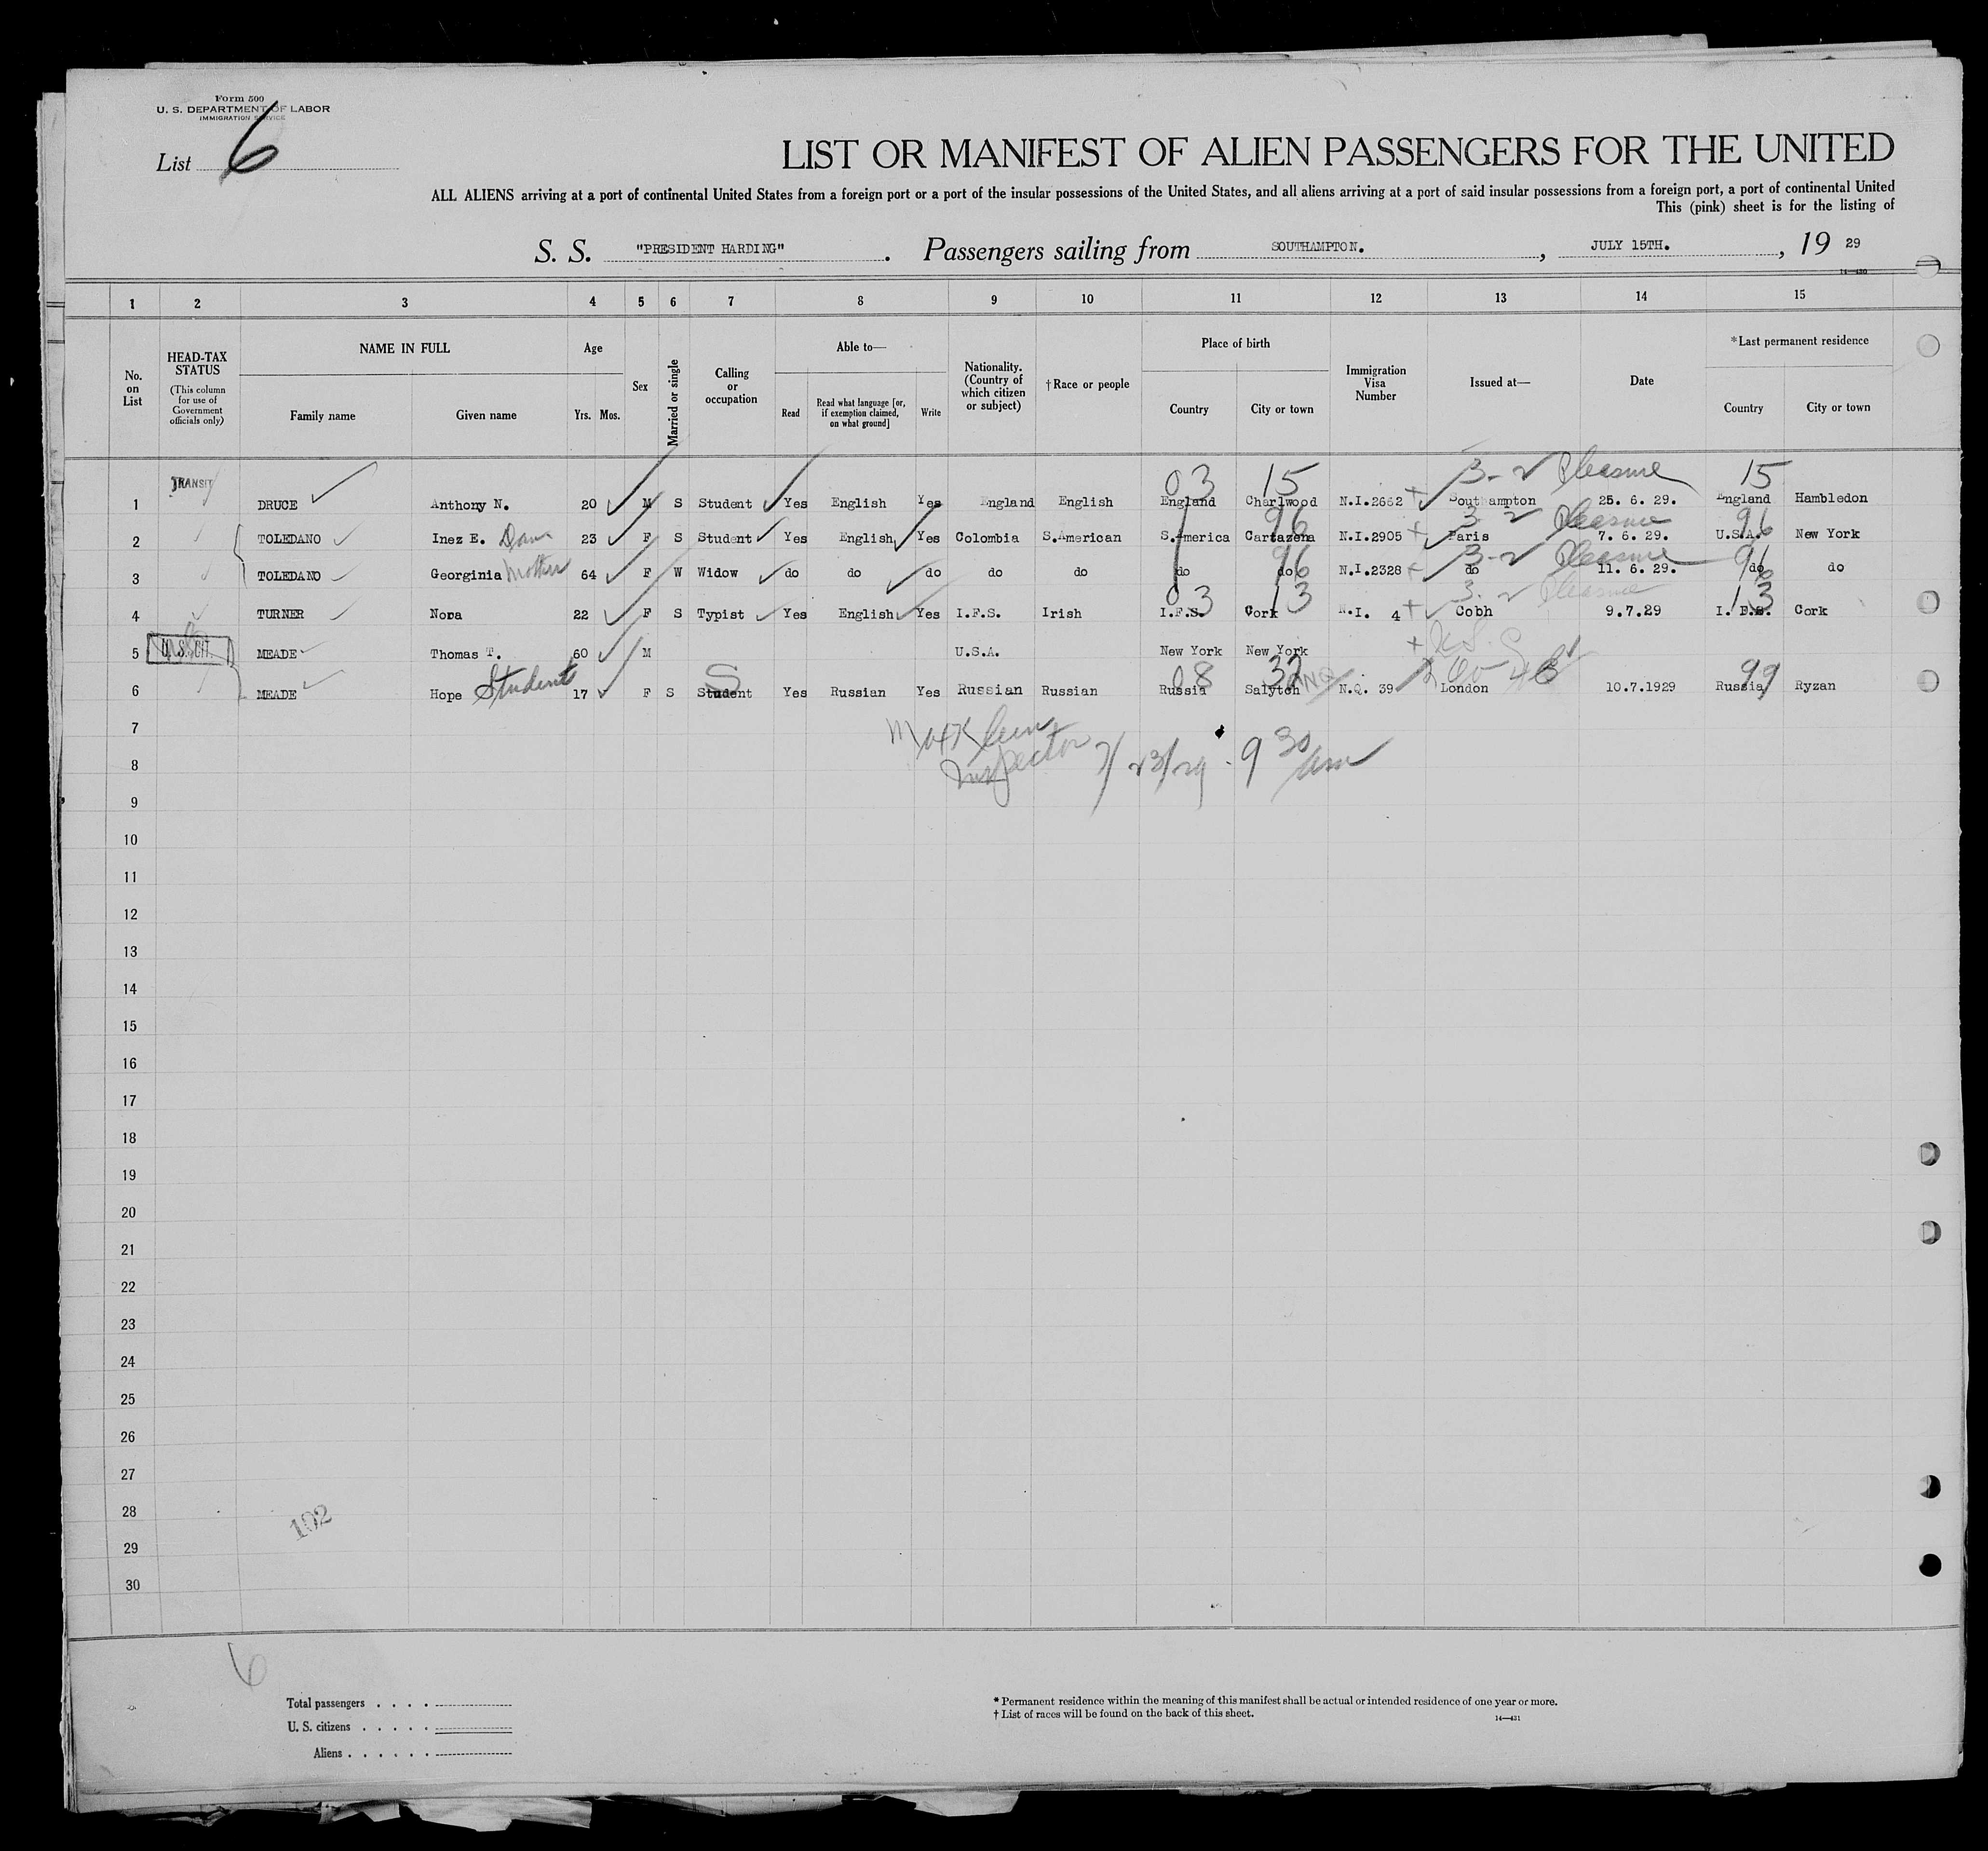 Form 500
U. S. DEPARTMENT OF LABOR
IMMIGRATION SERVICE
List 6
LIST OR MANIFEST OF ALIEN PASSENGERS FOR THE UNITED
ALL ALIENS arriving at a port of continental United States from a foreign port or a port of the insular possessions of the United States, and all aliens arriving at a port of said insular possessions from a foreign port, a port of continental United
This (pink) sheet is for the listing of
S. S. "PRESIDENT HARDING". Passengers sailing from SOUTHAMPTON., JULY 15TH., 19 29
14—430
1 2 3 4 5 6 7 8 9 10 11 12 13 14 15
No. on List
HEAD-TAX STATUS (This column for use of Government officials only)
NAME IN FULL
Family name
Given name
Age
Yrs. Mos.
Sex
Married or single
Calling or occupation
Able to—
Read
Read what language [or, if exemption claimed, on what ground]
Write
Nationality. (Country of which citizen or subject)
†Race or people
Place of birth
Country
City or town
Immigration Visa Number
Issued at—
Date
*Last permanent residence
Country
City or town
TRANSIT 03 15 3-2 Pleasure 15
1 DRUCE Anthony N. 20 M S Student Yes English Yes England English England Charlwood N.I.2662 Southampton 25. 6. 29. England Hambledon
1 96 3 2 Pleasure 96
2 TOLEDANO Inez E. 23 F S Student Yes English Yes Colombia S.American S.America Cartazena N.I.2905 Paris 7. 6. 29. U.S.A. New York
96 3-2 Pleasure 96
3 TOLEDANO Georginia Mother 64 F W Widow do do do do do do do N.I.2328 do 11. 6. 29. do do
03 13 3-2 Pleasure 13
4 TURNER Nora 22 F S Typist Yes English Yes I.F.S. Irish I.F.S. Cork N.I. 4 Cobh 9.7.29 I.F.S. Cork
5 U. S. CIT. MEADE Thomas T. 60 M U.S.A. New York New York
S 08 32 NQ 99
6 MEADE Hope Student 17 F S Student Yes Russian Yes Russian Russian Russia Salytch N.Q. 39 London 10.7.1929 Russia Ryzan
7
Inspector 7/23/29 - 9 30 am
8
9
10
11
12
13
14
15
16
17
18
19
20
21
22
23
24
25
26
27
28
102
29
30
6
Total passengers . . . .
U. S. citizens . . . . .
Aliens . . . . . .
* Permanent residence within the meaning of this manifest shall be actual or intended residence of one year or more.
† List of races will be found on the back of this sheet.
14—431